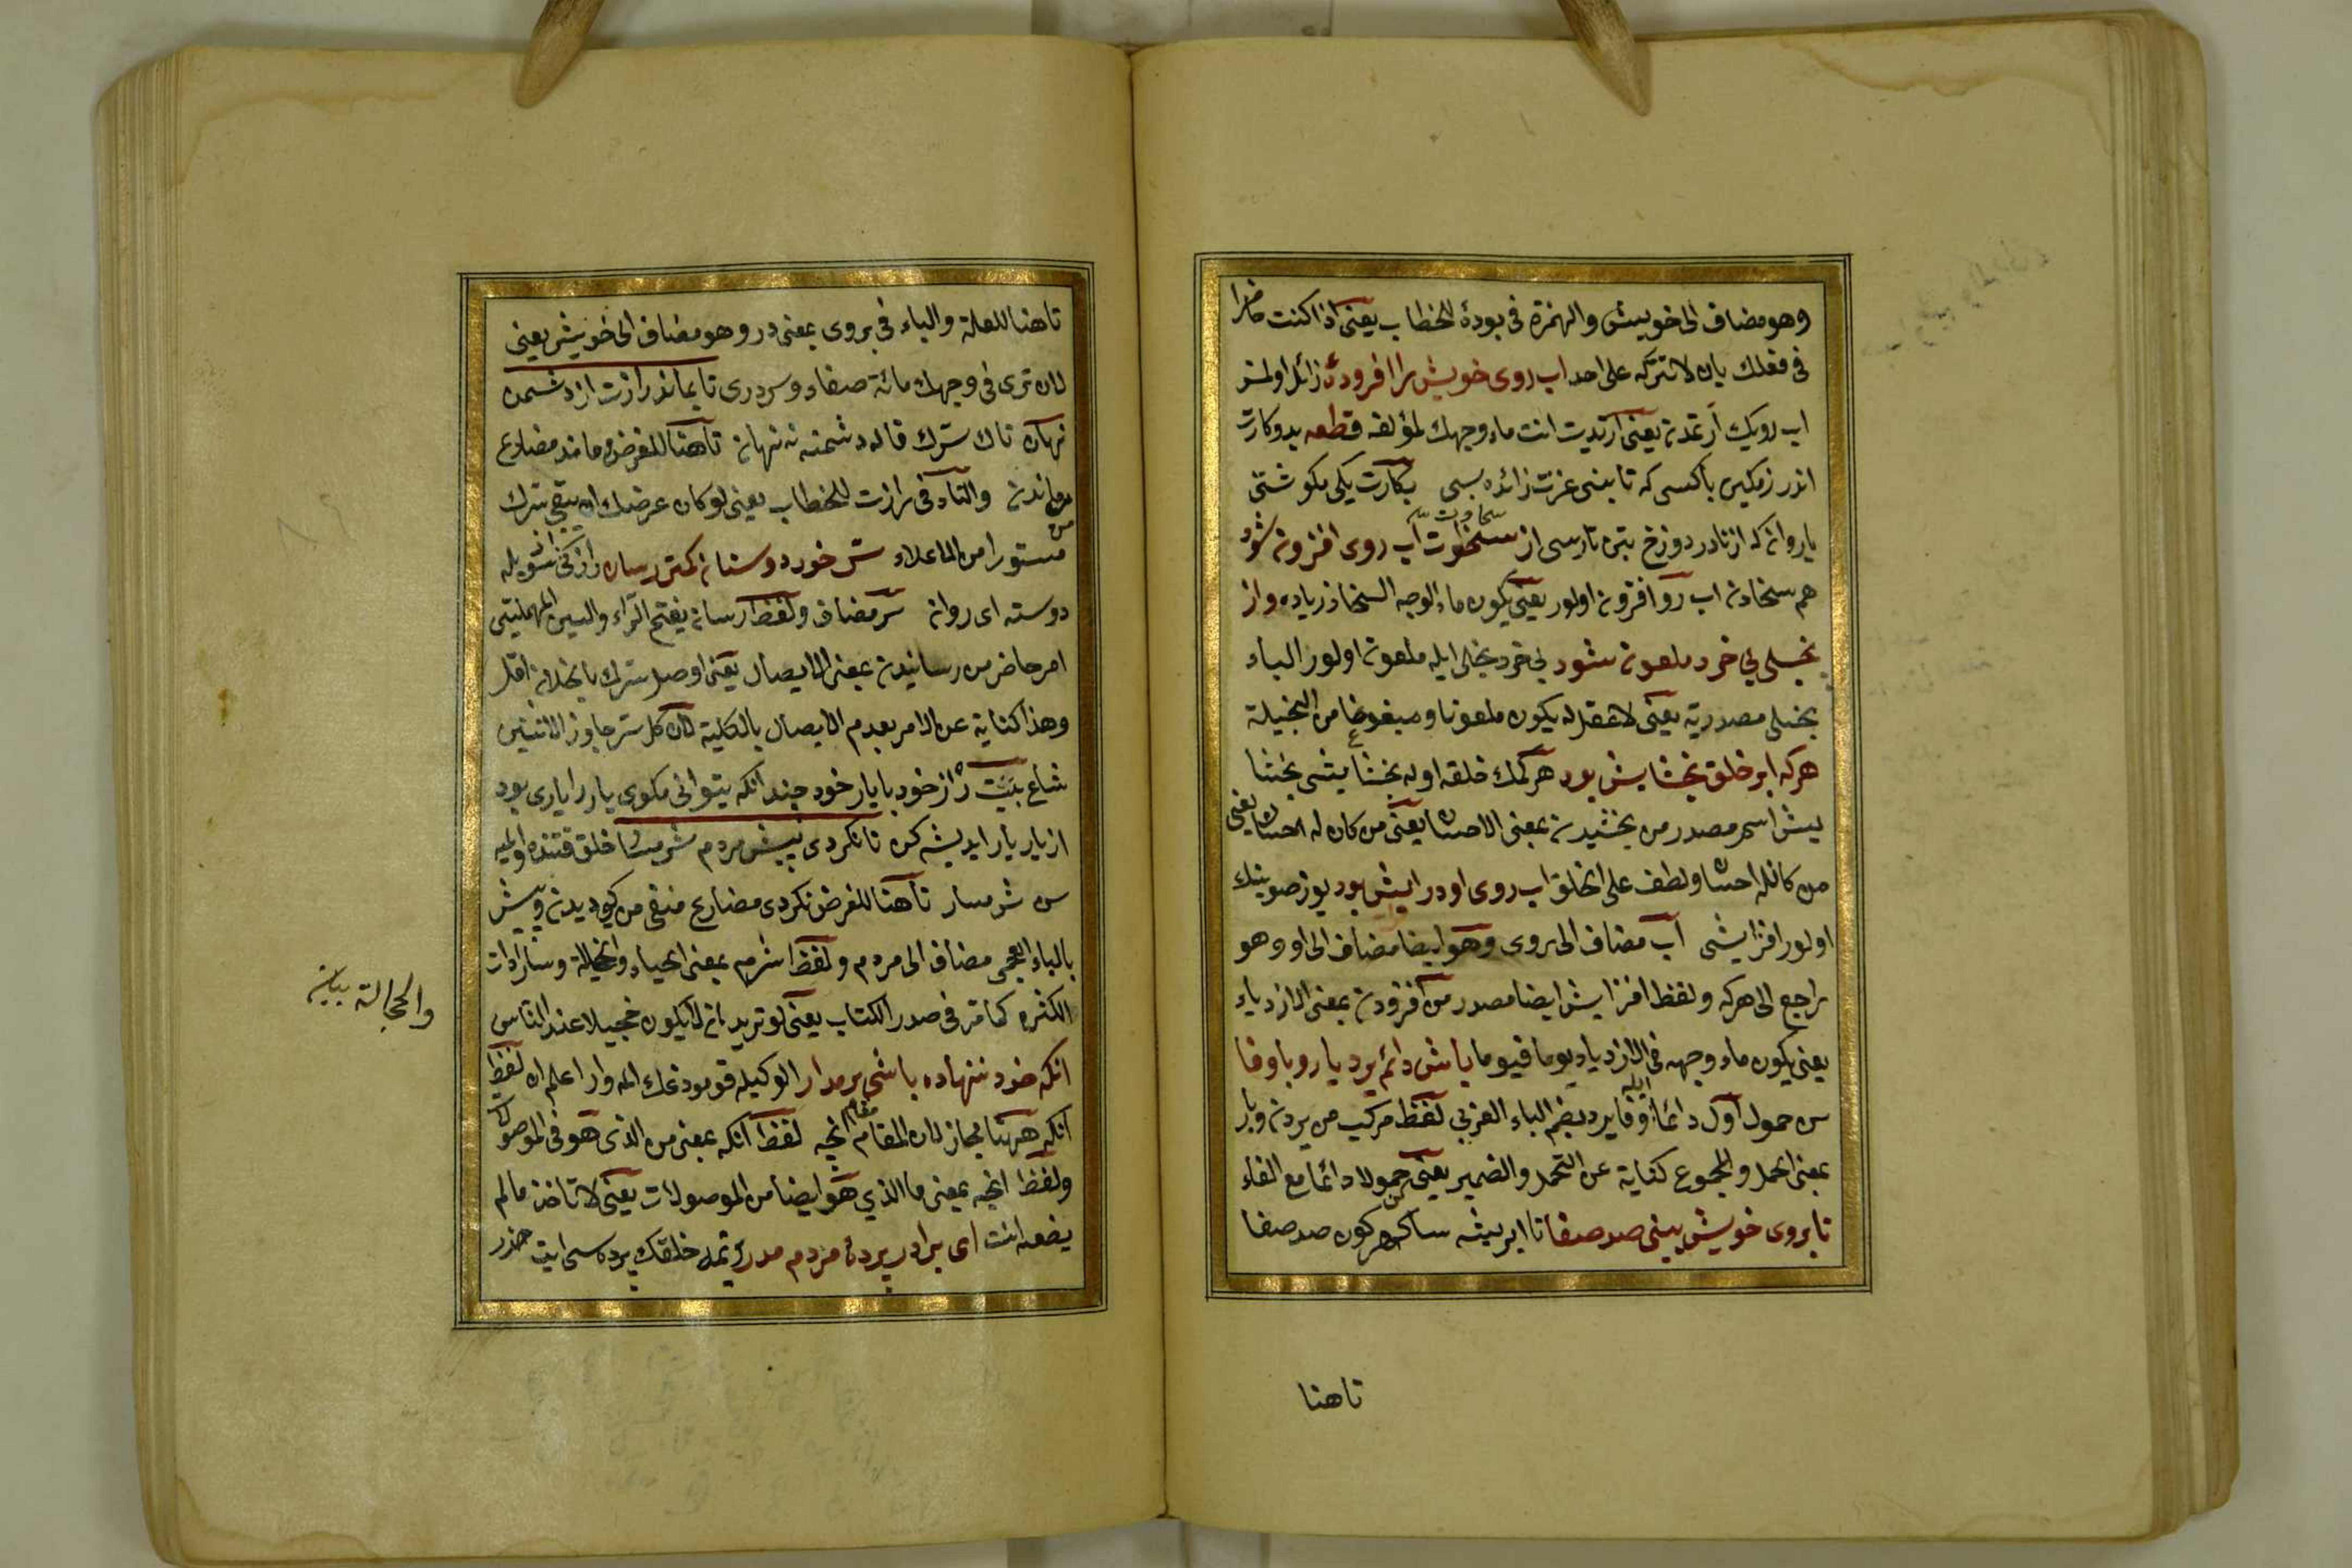 وهو مضاف الى خويش والهمزة فى بودهٔ للخطاب يعنى اذا كنت حاضرا
فى فعلك بان لا تتركه على احد اب روى خويش را افزودهٔ زائد اولمش
اب رويك ارتمدن يعنى ارتديت انت ماء وجهك لمؤلفه قطعه بد وكارت
اندر زمكين باكسى كه تا بينى عزت زائده بسى بكارت يكى مكو شتى
يا روانه كه از نادر دوزخ بتن تا رسى از سخاوت اب روى افزون شود
هم سخادن اب رو افزون اولور يعنى يكون ماء الوجه السخا زياده واز
بخيلى بى خرد ملعون شود بى خرد بخلى ايله ملعون اولور الياء
بخيلى مصدرية يعنى لا عقل له يكون ملعونا ومبغوضا من البخيلة
هركه ابر خلق بخشايش بود هر كمك خلقه اوله بخشايشى بخشا
يش اسم مصدر من بخشيدن بمعنى الاحسان يعنى من كان له احسان يعنى
من كان له احسان ولطف على الخلق اب روى او در ايش بود يوز صوينك
اولور افزايشى آب مضاف الى روى وهو ايضا مضاف الى او وهو
راجع الى هركه ولفظ افزايش ايضا مصدر من افزودن بمعنى الازدياد
يعنى يكون ماء وجهه فى الازدياد يوما فيوما باش دائم بردبار وباوفا
س حمول اول دائما ايله وفا برد بضم الباء العربى لفظ مركب من بردن وبار
بمعنى الحمل والمجموع كناية عن التحمل والضمير يعنى كن حمولا دائما مع الفاء
تا بروى خويش بينى صد صفا تا ايريشه ساكه هر كون صد صفا
تاهنا
تاهنا للعلة والباء فى بروى بمعنى در وهو مضاف الى خويش يعنى
لان ترى فى وجهك مائة صفاء وسردرى تا بماند رازت از دشمن
نهان تاك سرك قاله دشمنه نه نهان تاهنا للغرض وماند مضارع
من ماندن والتاء فى رازت للخطاب يعنى لو كان عرضك ان يبقى سرك
مستورا من الاعداء سر خود دوستان كمتر رسان رازكى سويله
دوسته اى روان سر مضاف ولفظ رسان بفتح الراء والسين المهملتين
امر حاضر من رسانيدن بمعنى الايصال يعنى اوصل سرك باخلان اقل
وهذا كناية عن الامر بعدم الايصال بالكلية لان كل سر جاوز الاثنين
شاع بيت راز خود با يار خود چندانكه بتوانى مكوى يار را يارى بود
از يار يار انديشه كن تا نكردى پيش مردم شرمسار خلق قتنده اوليه
سن شرمسار تاهنا للغرض نكردى مضارع منفى من كرديدن وپيش
بالباء العجمى مضاف الى مردم ولفظ شرم بمعنى الحياء والخجالة وسار ادات
الكثره كما مر فى صدر الكتاب يعنى لو تريد ان لا يكون خجيلا عند الناس
انكه خود ننهاده باشى برمدار الوكيله قومودغك المه وار اعلم ان لفظ
انكه ههنا مجاز لان المقام مقام انچه لفظ انكه بمعنى من الذى هو فى الموصول
ولفظ انچه بمعنى ما الذى هو ايضا من الموصولات يعنى لا تاخذ مالم
يضعه انت اى برادر پردهٔ مردم مدر يمه خلقك پرده سى ايت حذر
والخجالة بيان